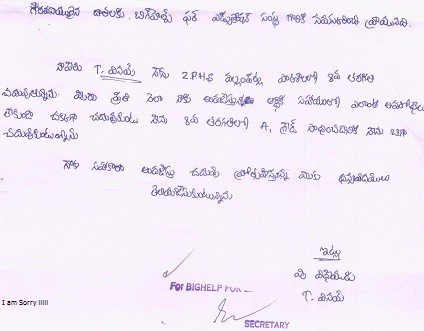 గౌరవనీయులైన దాతలకు. బిగ్‌హెల్ప్ ఫర్ ఎడ్యుకేషన్ సంస్థ గారికి నమస్కరించి వ్రాయునది.
నాపేరు T. వినయ్ నేను Z.P.H.S పాఠశాలలో 8వ తరగతి
చదువుతున్నాను. మీరు ప్రతి నెలా నాకు అందజేస్తున్న ఆర్థిక సహాయంతో ఎలాంటి
లేకుండా చక్కగా చదువుకుంటూ నేను 8వ తరగతిలో A, గ్రేడ్ సాధించటానికి నేను బాగా
చదువుకుంటున్నాను
నాకు సహకారం అందజేస్తూ చదువు ప్రోత్సహిస్తున్న మీకు ధన్యవాదములు
తెలియజేసుకుంటున్నాను
ఇట్లు
మీ విధేయుడు
T. వినయ్
For BIGHELP FOR
SECRETARY
I am Sorry lllll